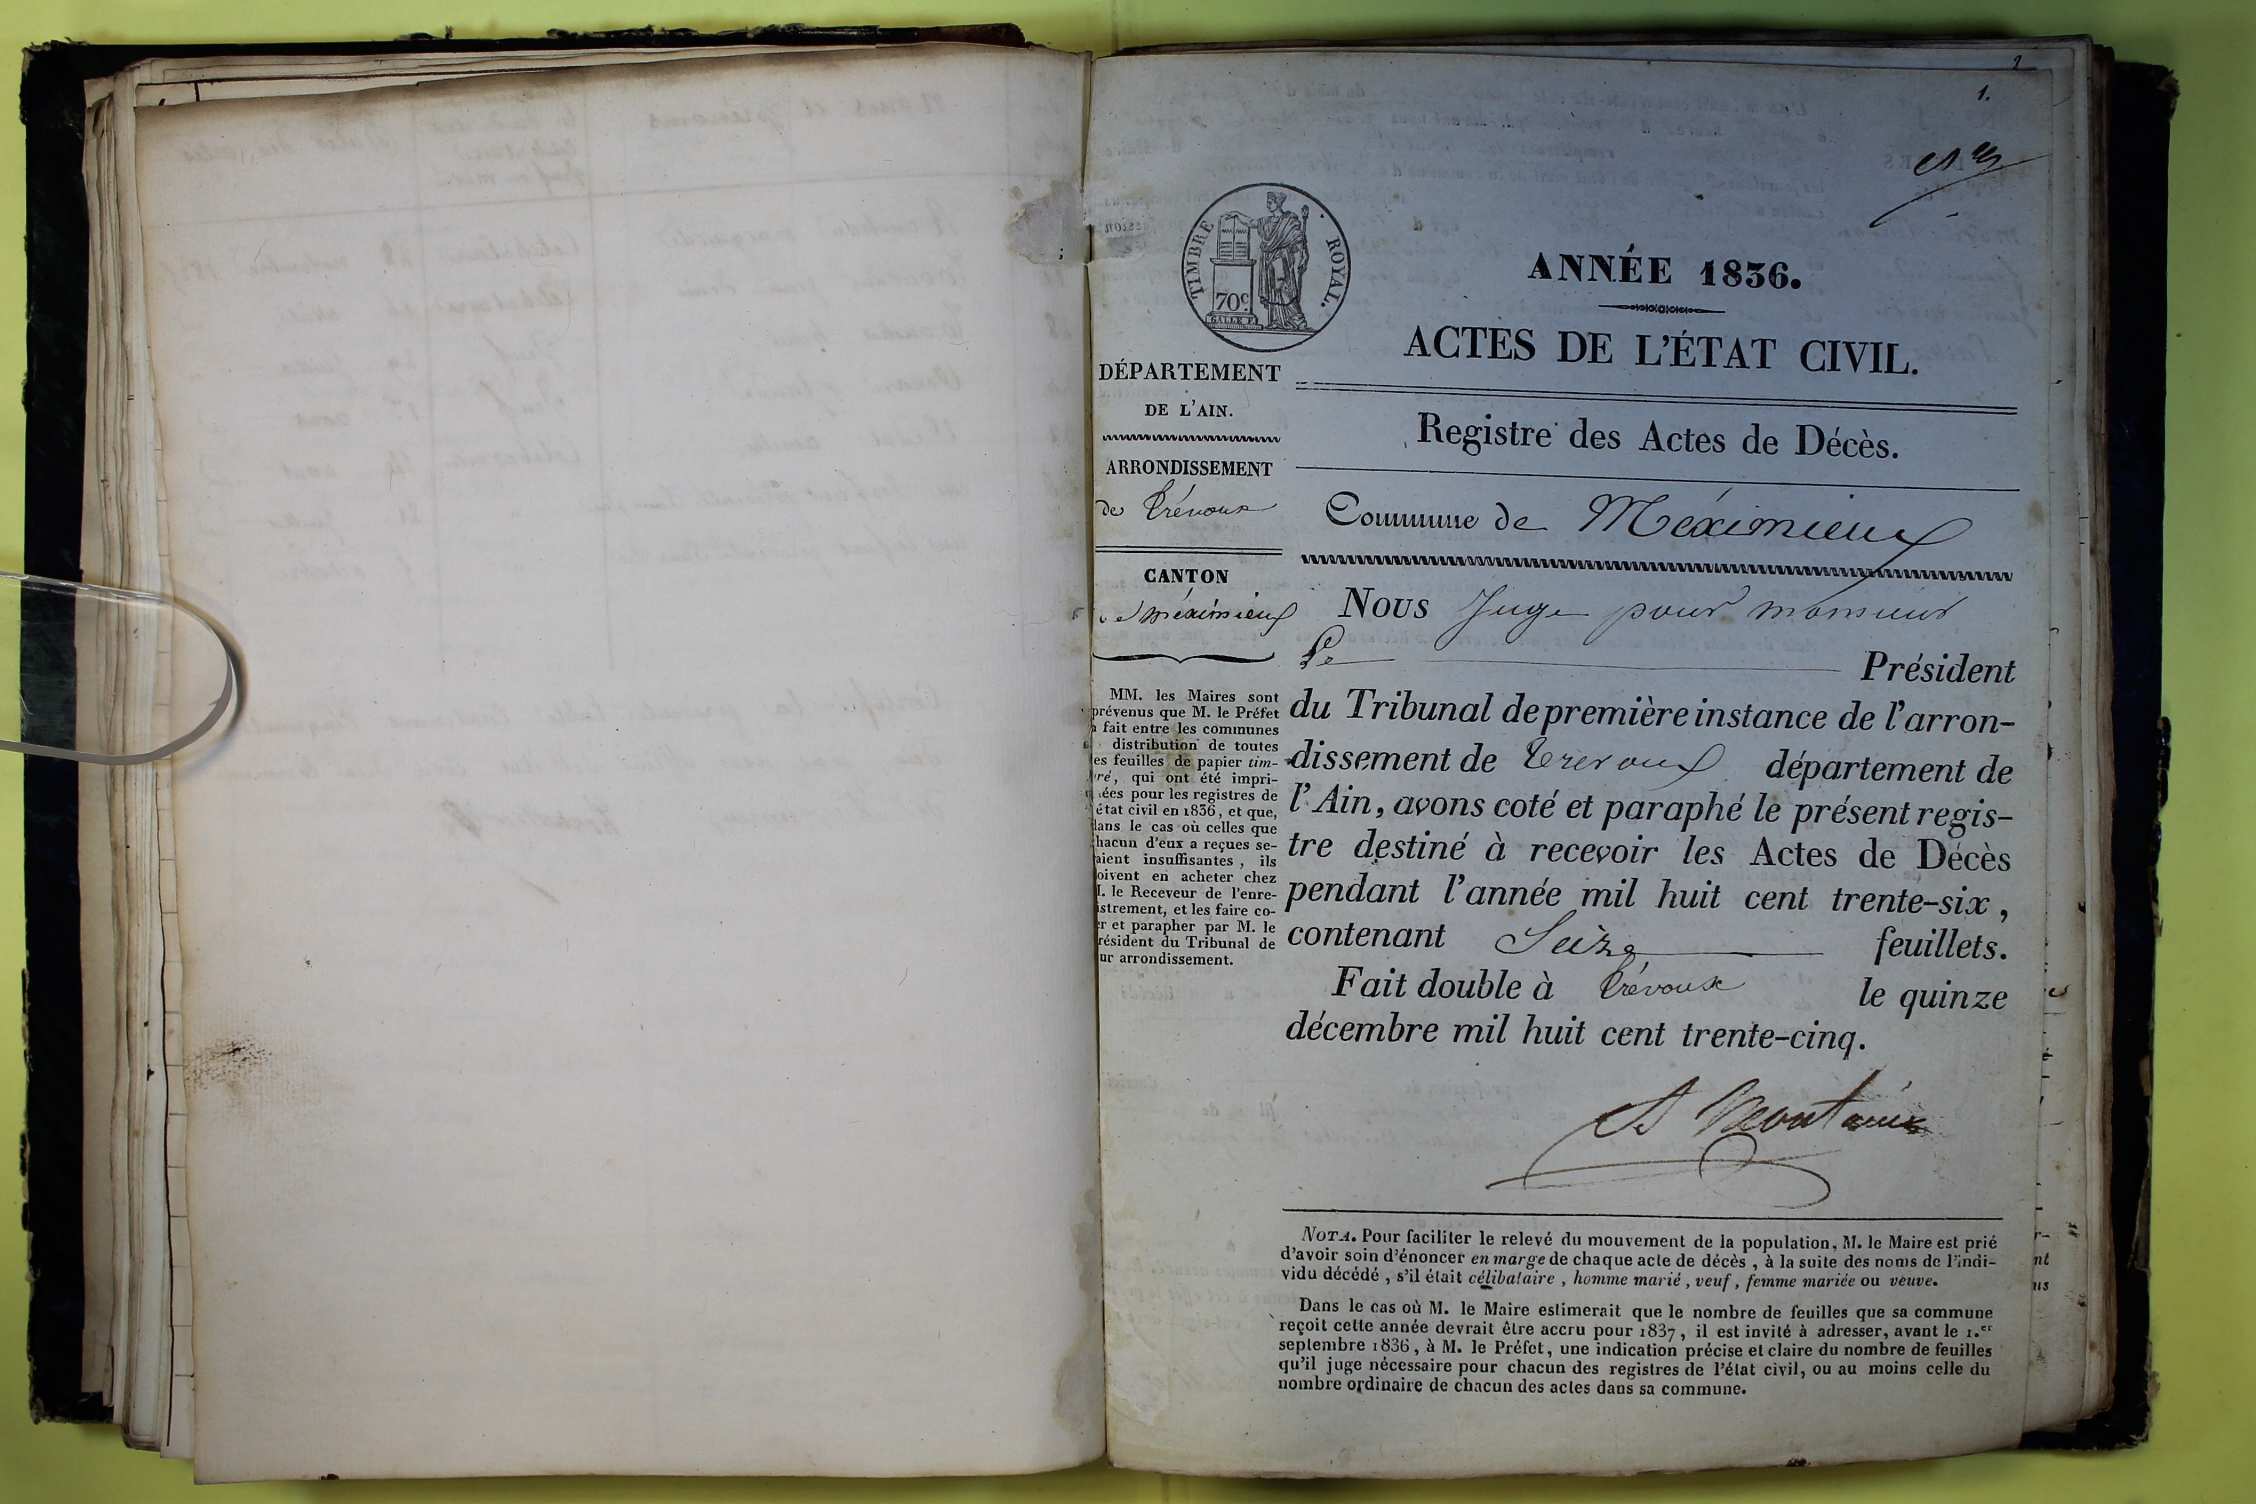 1.
TIMBRE ROYAL.
70c.
GALLE F.
ANNÉE 1836.
ACTES DE L'ÉTAT CIVIL.
Registre des Actes de Décès.
Commune de Méximieux
DÉPARTEMENT
DE L'AIN.
ARRONDISSEMENT
de Trévoux
CANTON
de Méximieux
MM. les Maires sont
prévenus que M. le Préfet
a fait entre les communes
distribution de toutes
les feuilles de papier tim-
bré, qui ont été impri-
mées pour les registres de
l'état civil en 1836, et que,
dans le cas où celles que
chacun d'eux a reçues se-
raient insuffisantes, ils
doivent en acheter chez
M. le Receveur de l'enre-
gistrement, et les faire co-
ter et parapher par M. le
Président du Tribunal de
leur arrondissement.
Nous Juge pour monsieur
Le Président
du Tribunal de première instance de l'arron-
dissement de Trévoux département de
l'Ain, avons coté et paraphé le présent regis-
tre destiné à recevoir les Actes de Décès
pendant l'année mil huit cent trente-six,
contenant Seize feuillets.
Fait double à Trévoux le quinze
décembre mil huit cent trente-cinq.
NOTA. Pour faciliter le relevé du mouvement de la population, M. le Maire est prié
d'avoir soin d'énoncer en marge de chaque acte de décès, à la suite des noms de l'indi-
vidu décédé, s'il était célibataire, homme marié, veuf, femme mariée ou veuve.
Dans le cas où M. le Maire estimerait que le nombre de feuilles que sa commune
reçoit cette année devrait être accru pour 1837, il est invité à adresser, avant le 1.er
septembre 1836, à M. le Préfet, une indication précise et claire du nombre de feuilles
qu'il juge nécessaire pour chacun des registres de l'état civil, ou au moins celle du
nombre ordinaire de chacun des actes dans sa commune.